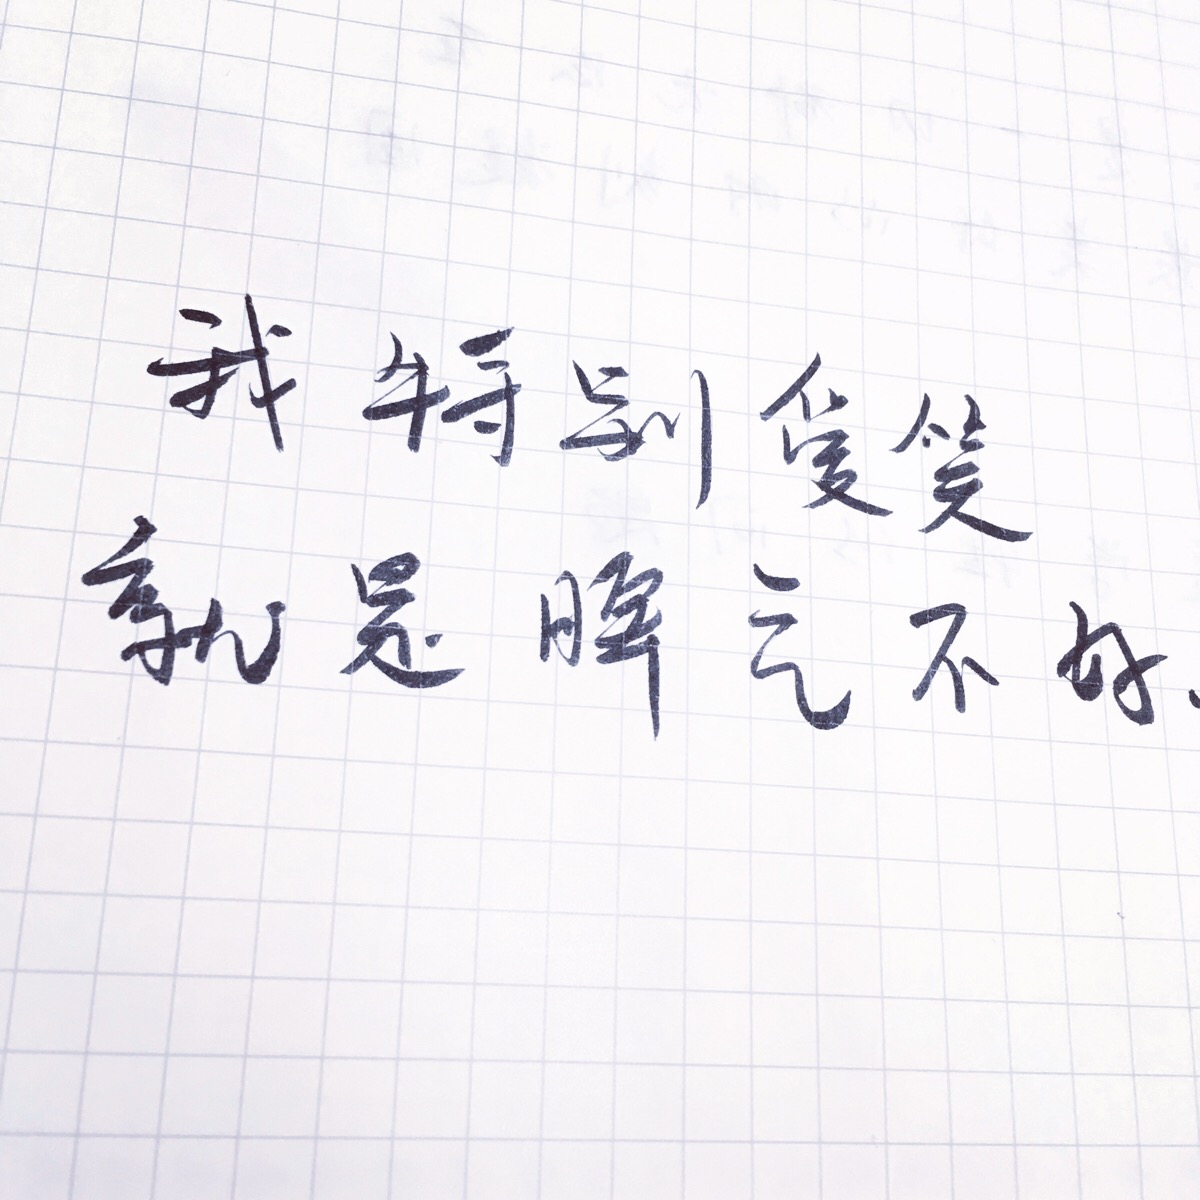 我特别爱笑
就是脾气不好